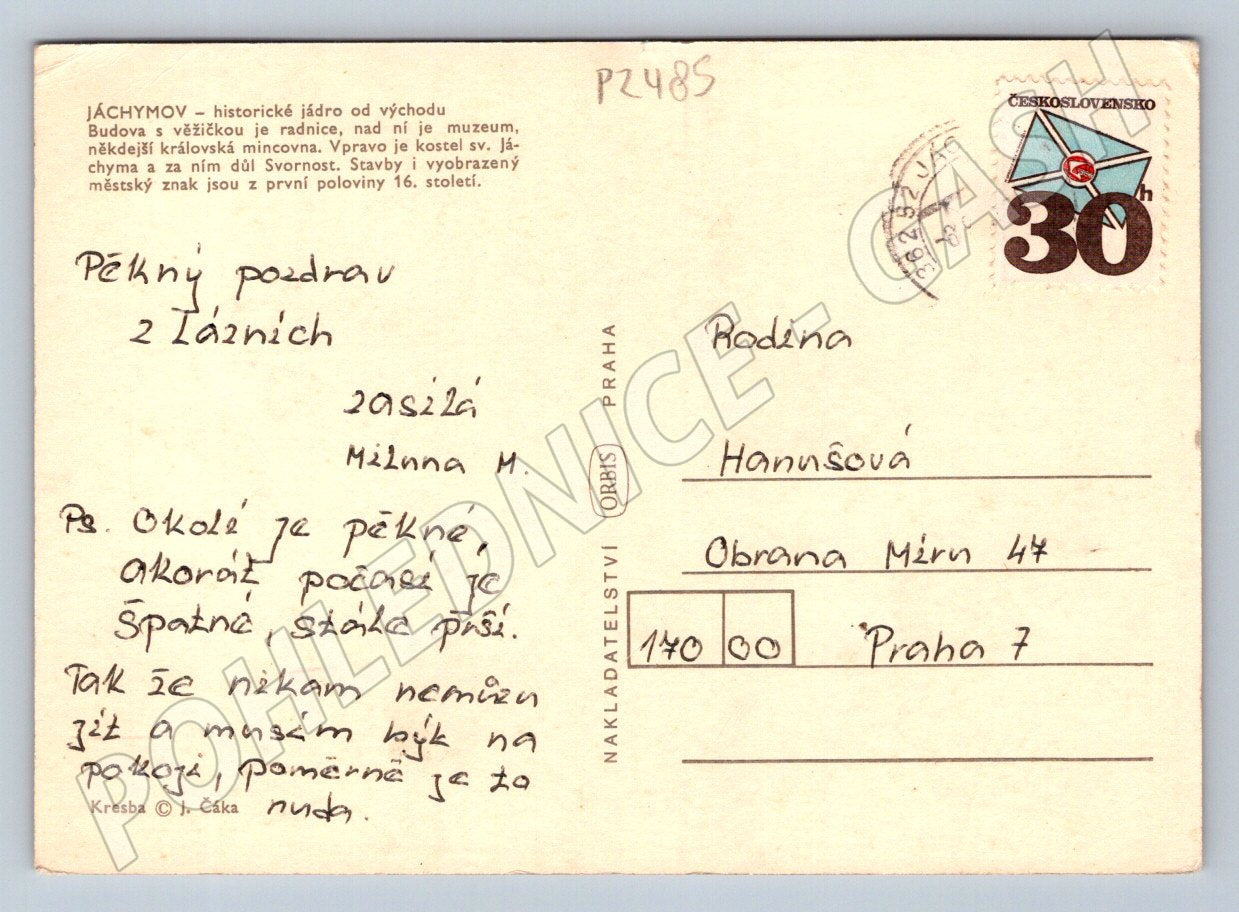 P2485
JÁCHYMOV – historické jádro od východu
Budova s věžičkou je radnice, nad ní je muzeum,
někdejší královská mincovna. Vpravo je kostel sv. Já-
chyma a za ním důl Svornost. Stavby i vyobrazený
městský znak jsou z první poloviny 16. století.
ČESKOSLOVENSKO
30 h
362 52 JÁC
Pěkný pozdrav
z lázních
zasílá
Miluna M.
Ps. Okolí je pěkné,
akorát počasí je
špatné, stále prší.
Tak že nikam nemůžu
jít a musím být na
pokoji, poměrně je to
nuda.
Kresba © J. Čáka
NAKLADATELSTVÍ ORBIS PRAHA
Rodina
Hanušová
Obrana Míru 47
170 00 Praha 7
POHLEDNICE - CASH